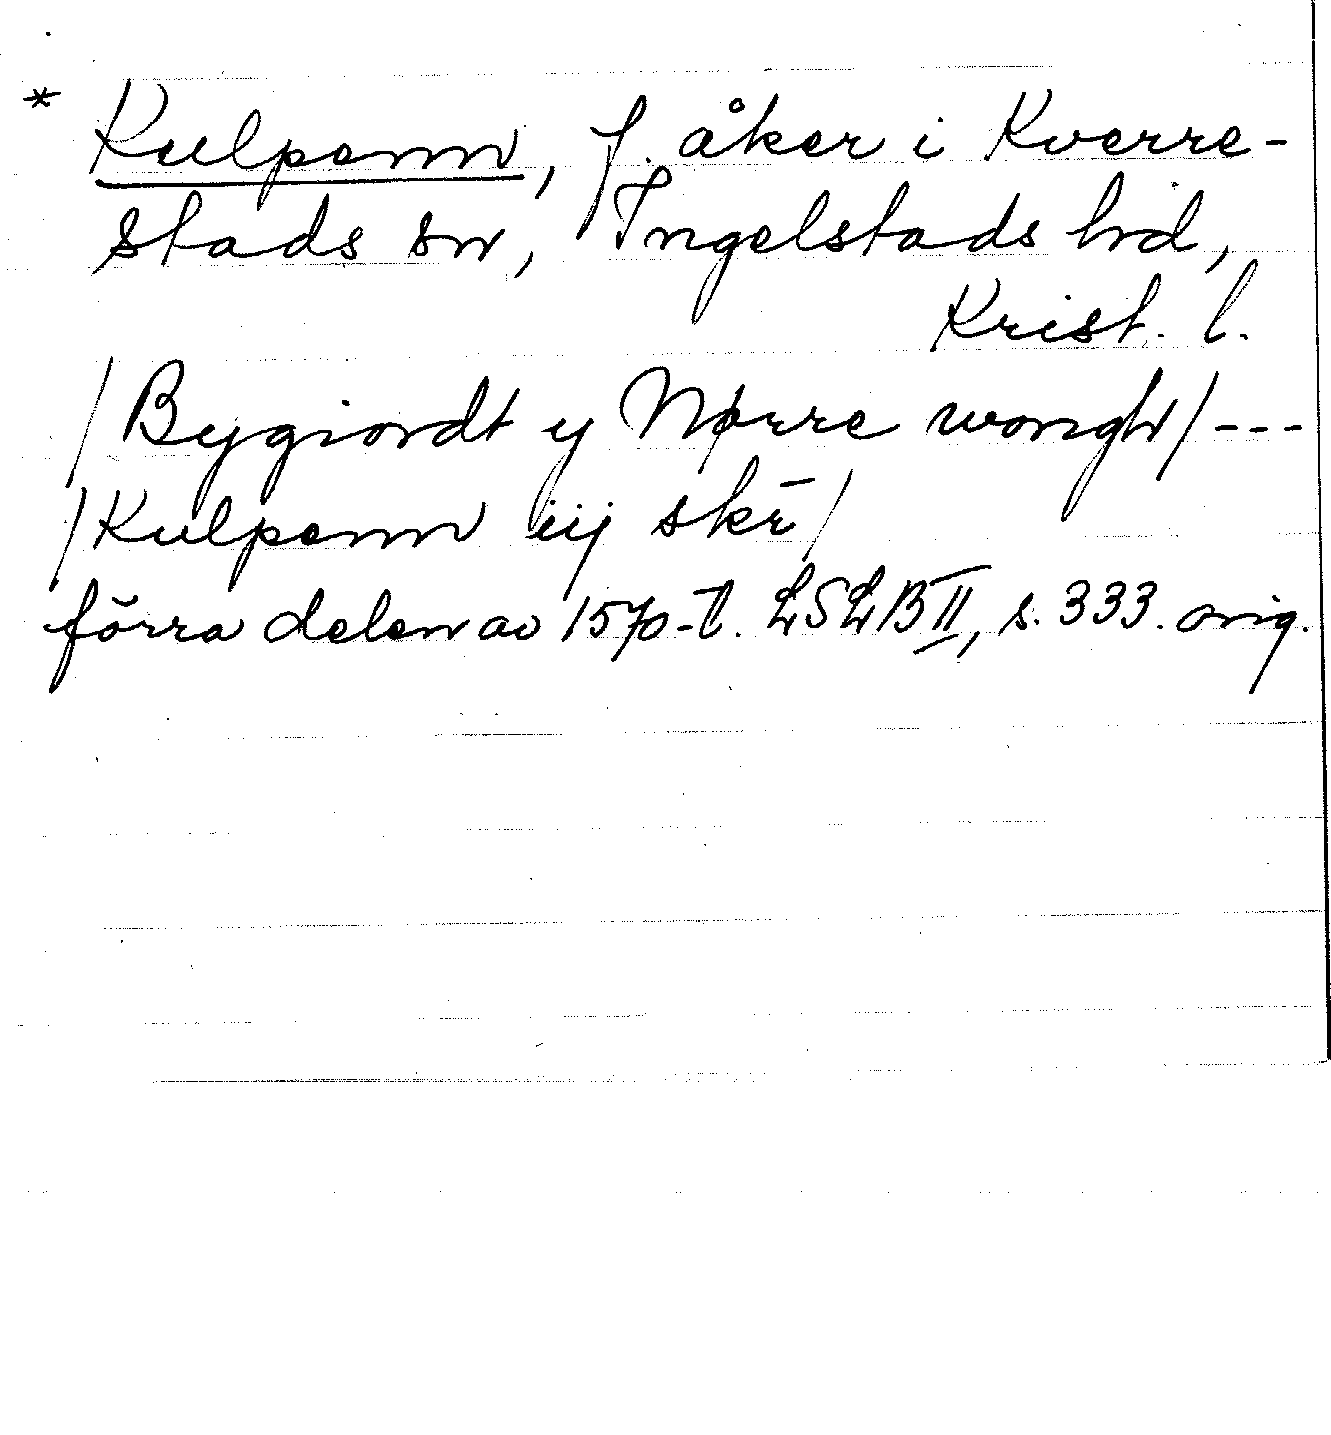 * Kulpenn, f. åker i Kverre-
stads sn, Ingelstads hd,
Krist. l.
/Bygiordt y Nørre wongh/---
/Kulpenn iij skr̄/
förra delen av 1570-t. LSLB II, s. 333. orig.